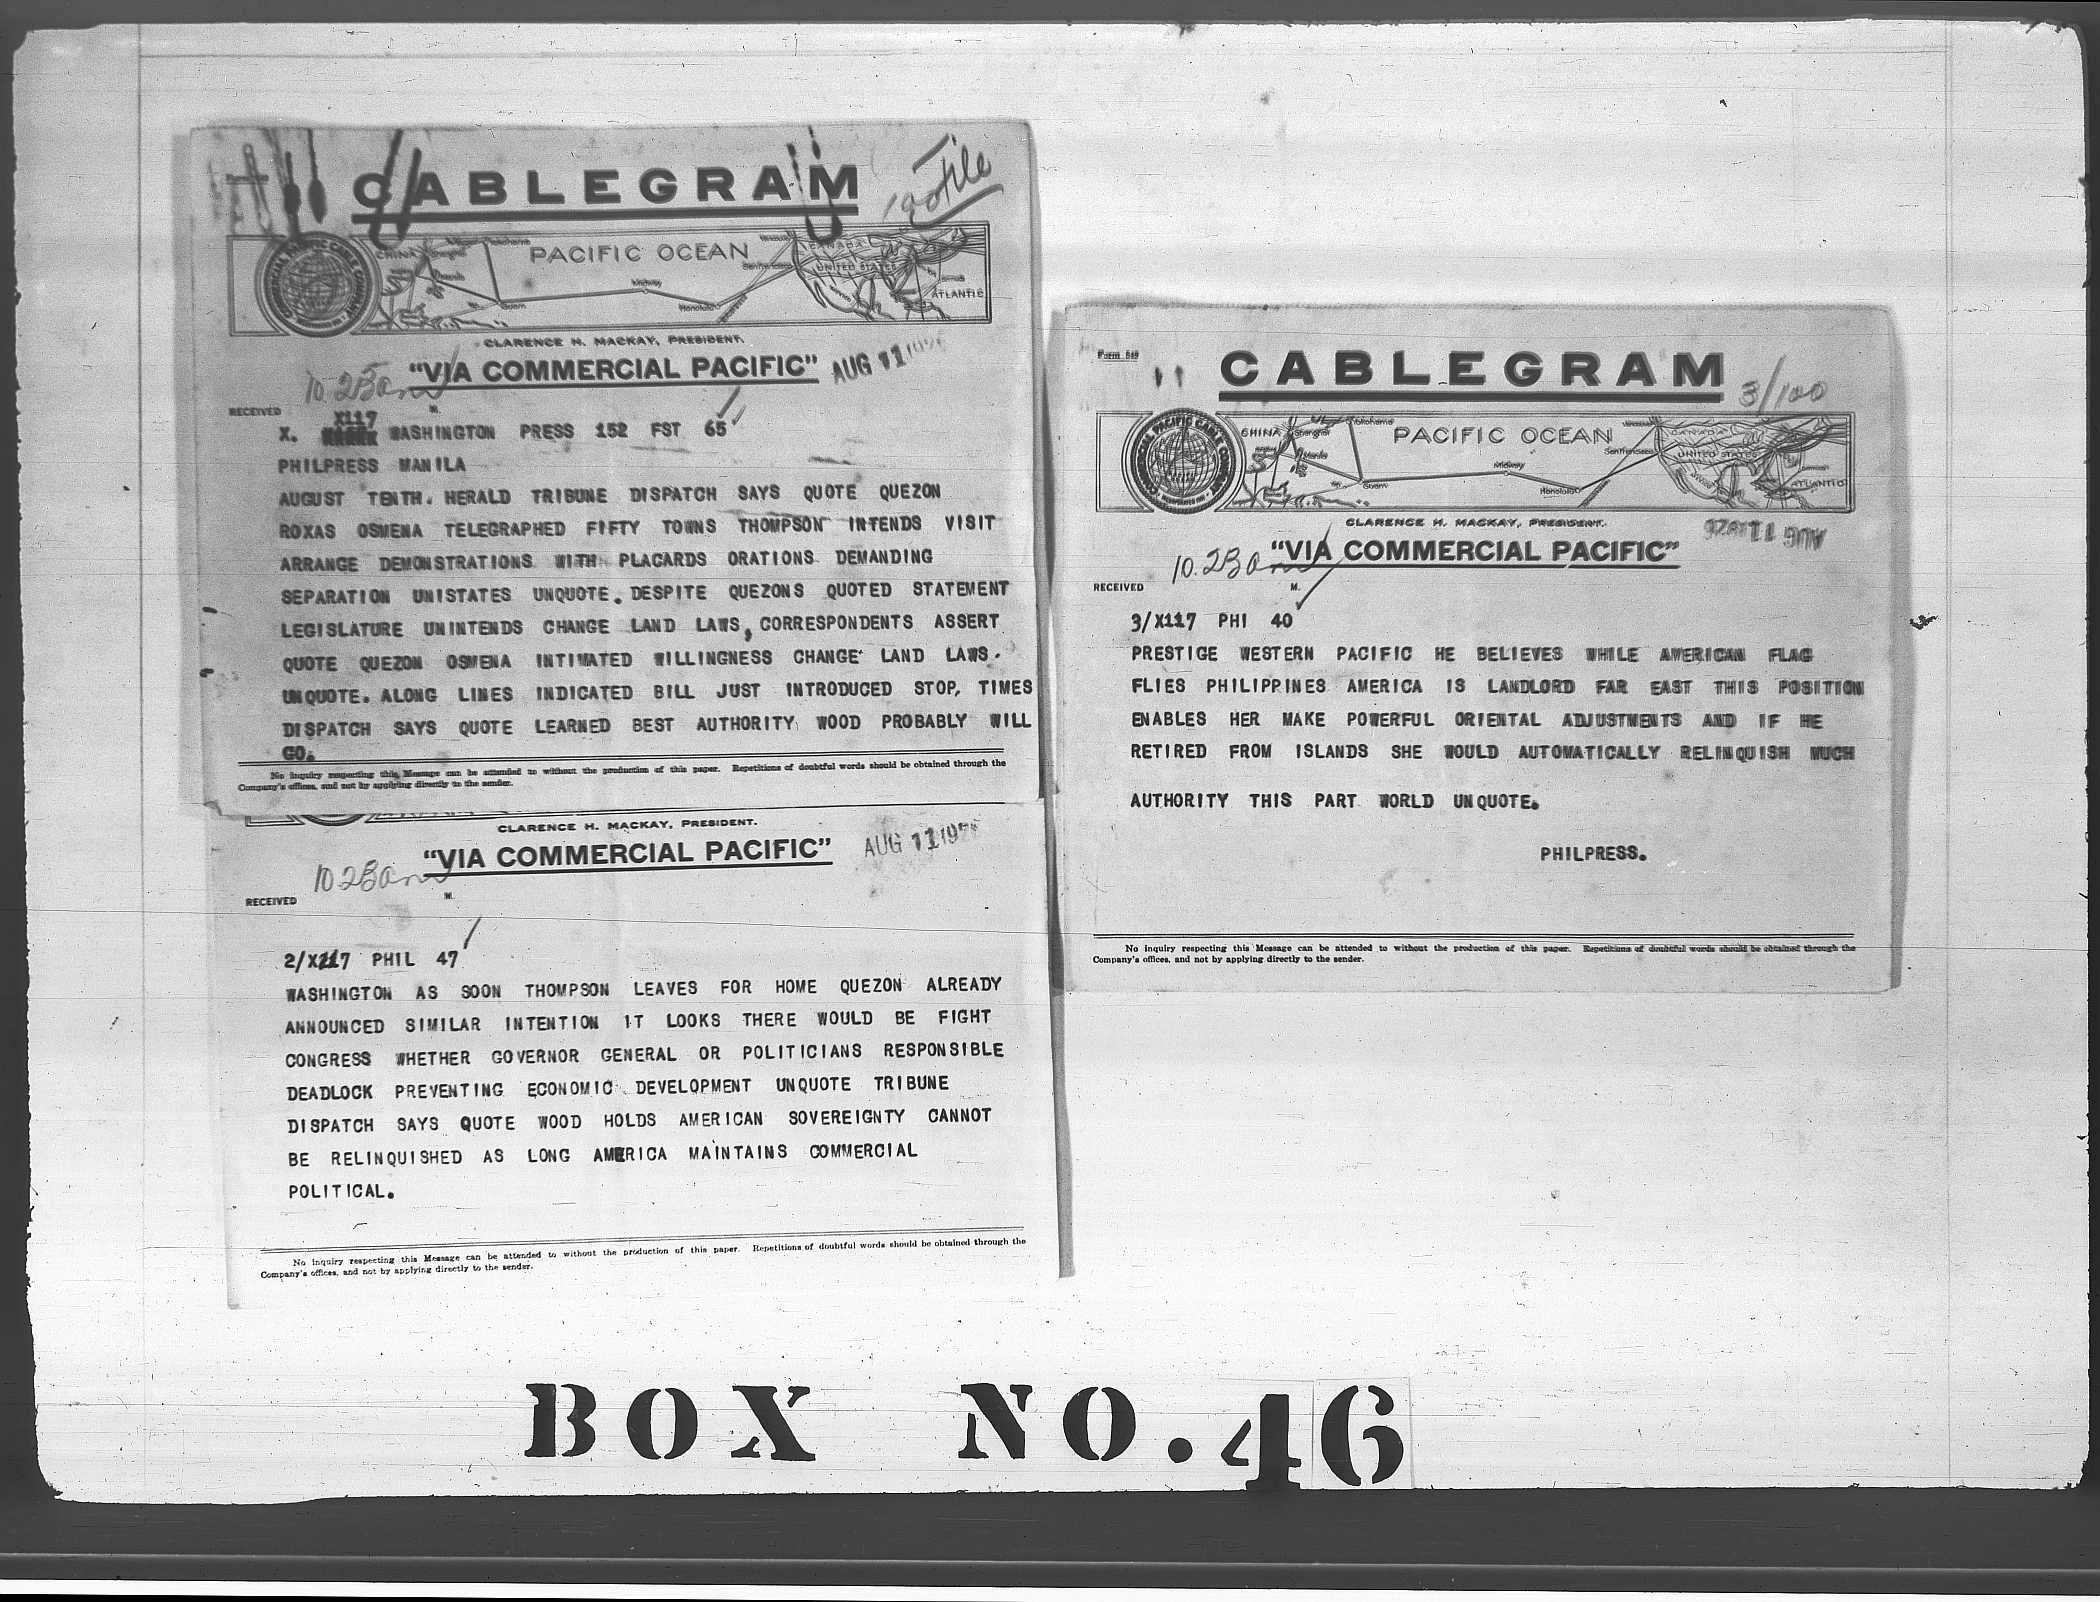 CABLEGRAM
to file
COMMERCIAL PACIFIC CABLE COMPANY
CHINA Shanghai Yokohama PACIFIC OCEAN Vancouver CANADA
San Francisco UNITED STATES
Manila Guam Midway Honolulu ATLANTIC
CLARENCE H. MACKAY, PRESIDENT.
"VIA COMMERCIAL PACIFIC" AUG 11 192
10.23am
RECEIVED M.
X117
X. WASHINGTON PRESS 152 FST 65
PHILPRESS MANILA
AUGUST TENTH. HERALD TRIBUNE DISPATCH SAYS QUOTE QUEZON
ROXAS OSMENA TELEGRAPHED FIFTY TOWNS THOMPSON INTENDS VISIT
ARRANGE DEMONSTRATIONS WITH PLACARDS ORATIONS DEMANDING
SEPARATION UNISTATES UNQUOTE. DESPITE QUEZONS QUOTED STATEMENT
LEGISLATURE UNINTENDS CHANGE LAND LAWS, CORRESPONDENTS ASSERT
QUOTE QUEZON OSMENA INTIMATED WILLINGNESS CHANGE LAND LAWS.
UNQUOTE. ALONG LINES INDICATED BILL JUST INTRODUCED STOP, TIMES
DISPATCH SAYS QUOTE LEARNED BEST AUTHORITY WOOD PROBABLY WILL
GO.
No inquiry respecting this Message can be attended to without the production of this paper. Repetitions of doubtful words should be obtained through the
Company's offices, and not by applying directly to the sender.
CLARENCE H. MACKAY, PRESIDENT.
"VIA COMMERCIAL PACIFIC" AUG 11 192
10.23am
RECEIVED M.
2/X117 PHIL 47
WASHINGTON AS SOON THOMPSON LEAVES FOR HOME QUEZON ALREADY
ANNOUNCED SIMILAR INTENTION IT LOOKS THERE WOULD BE FIGHT
CONGRESS WHETHER GOVERNOR GENERAL OR POLITICIANS RESPONSIBLE
DEADLOCK PREVENTING ECONOMIC DEVELOPMENT UNQUOTE TRIBUNE
DISPATCH SAYS QUOTE WOOD HOLDS AMERICAN SOVEREIGNTY CANNOT
BE RELINQUISHED AS LONG AMERICA MAINTAINS COMMERCIAL
POLITICAL.
No inquiry respecting this Message can be attended to without the production of this paper. Repetitions of doubtful words should be obtained through the
Company's offices, and not by applying directly to the sender.
Form 549
CABLEGRAM
3/100
COMMERCIAL PACIFIC CABLE COMPANY
CHINA Shanghai Yokohama PACIFIC OCEAN Vancouver CANADA
San Francisco UNITED STATES
Manila Guam Midway Honolulu ATLANTIC
CLARENCE H. MACKAY, PRESIDENT.
AUG 11 192
"VIA COMMERCIAL PACIFIC"
10.23am
RECEIVED M.
3/X117 PHI 40
PRESTIGE WESTERN PACIFIC HE BELIEVES WHILE AMERICAN FLAG
FLIES PHILIPPINES AMERICA IS LANDLORD FAR EAST THIS POSITION
ENABLES HER MAKE POWERFUL ORIENTAL ADJUSTMENTS AND IF HE
RETIRED FROM ISLANDS SHE WOULD AUTOMATICALLY RELINQUISH MUCH
AUTHORITY THIS PART WORLD UNQUOTE.
PHILPRESS.
No inquiry respecting this Message can be attended to without the production of this paper. Repetitions of doubtful words should be obtained through the
Company's offices, and not by applying directly to the sender.
BOX NO. 46